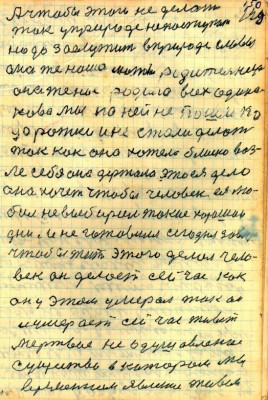 А чтобы этого не делать
так у природе не поступают
надо заслужить в природе славы
она же наша мать родительница
она тело родила всех одина-
кова мы на ней не пошли по
дорожки и не стали делать
так как она хотела близко воз-
ле себя она держала это ея дело
она хочет чтобы человек ея лю-
бил не выбирал такие хорошии
дни и не готовился сегодня
чтобы жить этого делал чело-
век он делает сейчас как
он у этом умерал так он
и умерает сейчас живёт
мёртвое не одушевлённое
существо в котором мы
временном явление живём